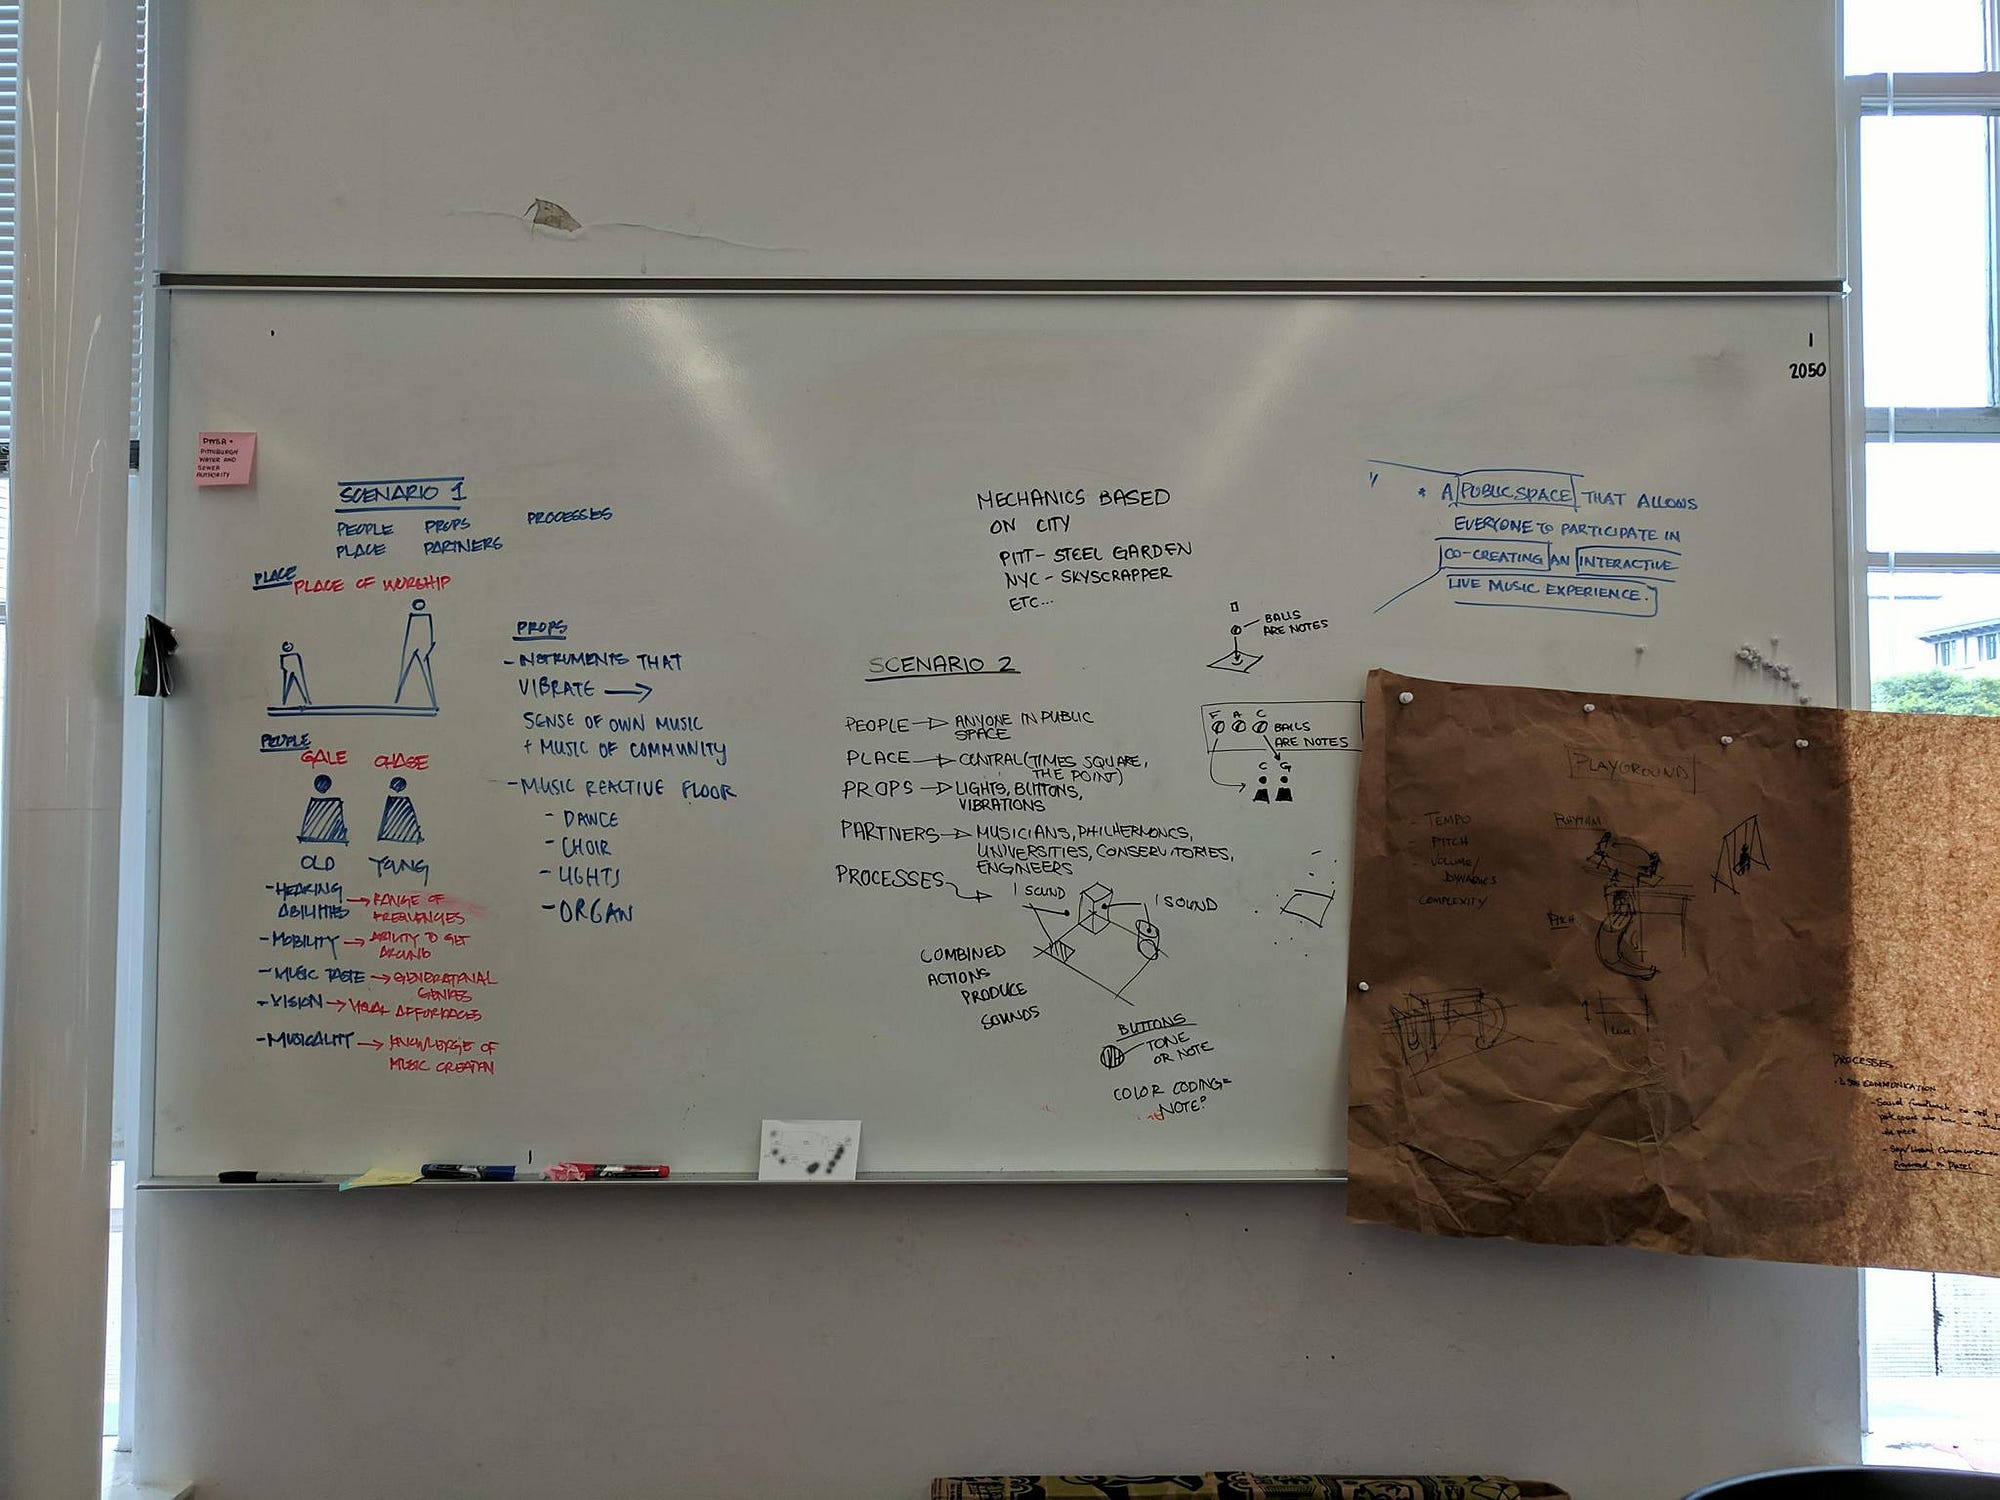 PWSA =
PITTSBURGH
WATER AND
SEWER
AUTHORITY
SCENARIO 1
PEOPLE PROPS PROCESSES
PLACE PARTNERS
PLACE
PLACE OF WORSHIP
PEOPLE
GALE CHASE
OLD YOUNG
- HEARING ABILITIES → RANGE OF FREQUENCIES
- MOBILITY → ABILITY TO GET AROUND
- MUSIC TASTE → GENERATIONAL GENRES
- VISION → VISUAL AFFORDACES
- MUSICALITY → KNOWLEDGE OF MUSIC CREATION
PROPS
- INSTRUMENTS THAT
VIBRATE →
SENSE OF OWN MUSIC
+ MUSIC OF COMMUNITY
- MUSIC REACTIVE FLOOR
- DANCE
- CHOIR
- LIGHTS
- ORGAN
MECHANICS BASED
ON CITY
PITT - STEEL GARDEN
NYC - SKYSCRAPPER
ETC...
SCENARIO 2
PEOPLE → ANYONE IN PUBLIC
SPACE
PLACE → CENTRAL (TIMES SQUARE,
THE POINT)
PROPS → LIGHTS, BUTTONS,
VIBRATIONS
PARTNERS → MUSICIANS, PHILHERMONCS,
UNIVERSITIES, CONSERVITORIES,
ENGINEERS
PROCESSES →
1 SOUND
1 SOUND
COMBINED
ACTIONS
PRODUCE
SOUNDS
BUTTONS
TONE
OR NOTE
COLOR CODING =
NOTE?
BALLS
ARE NOTES
F A C
BALLS
ARE NOTES
C G
1
2050
" * A PUBLIC SPACE THAT ALLOWS
EVERYONE TO PARTICIPATE IN
CO-CREATING AN INTERACTIVE
LIVE MUSIC EXPERIENCE.
PLAYGROUND
- TEMPO
- PITCH
- VOLUME/
DYNAMICS
COMPLEXITY
RHYTHM
PITCH
PROCESSES
COMMUNICATION